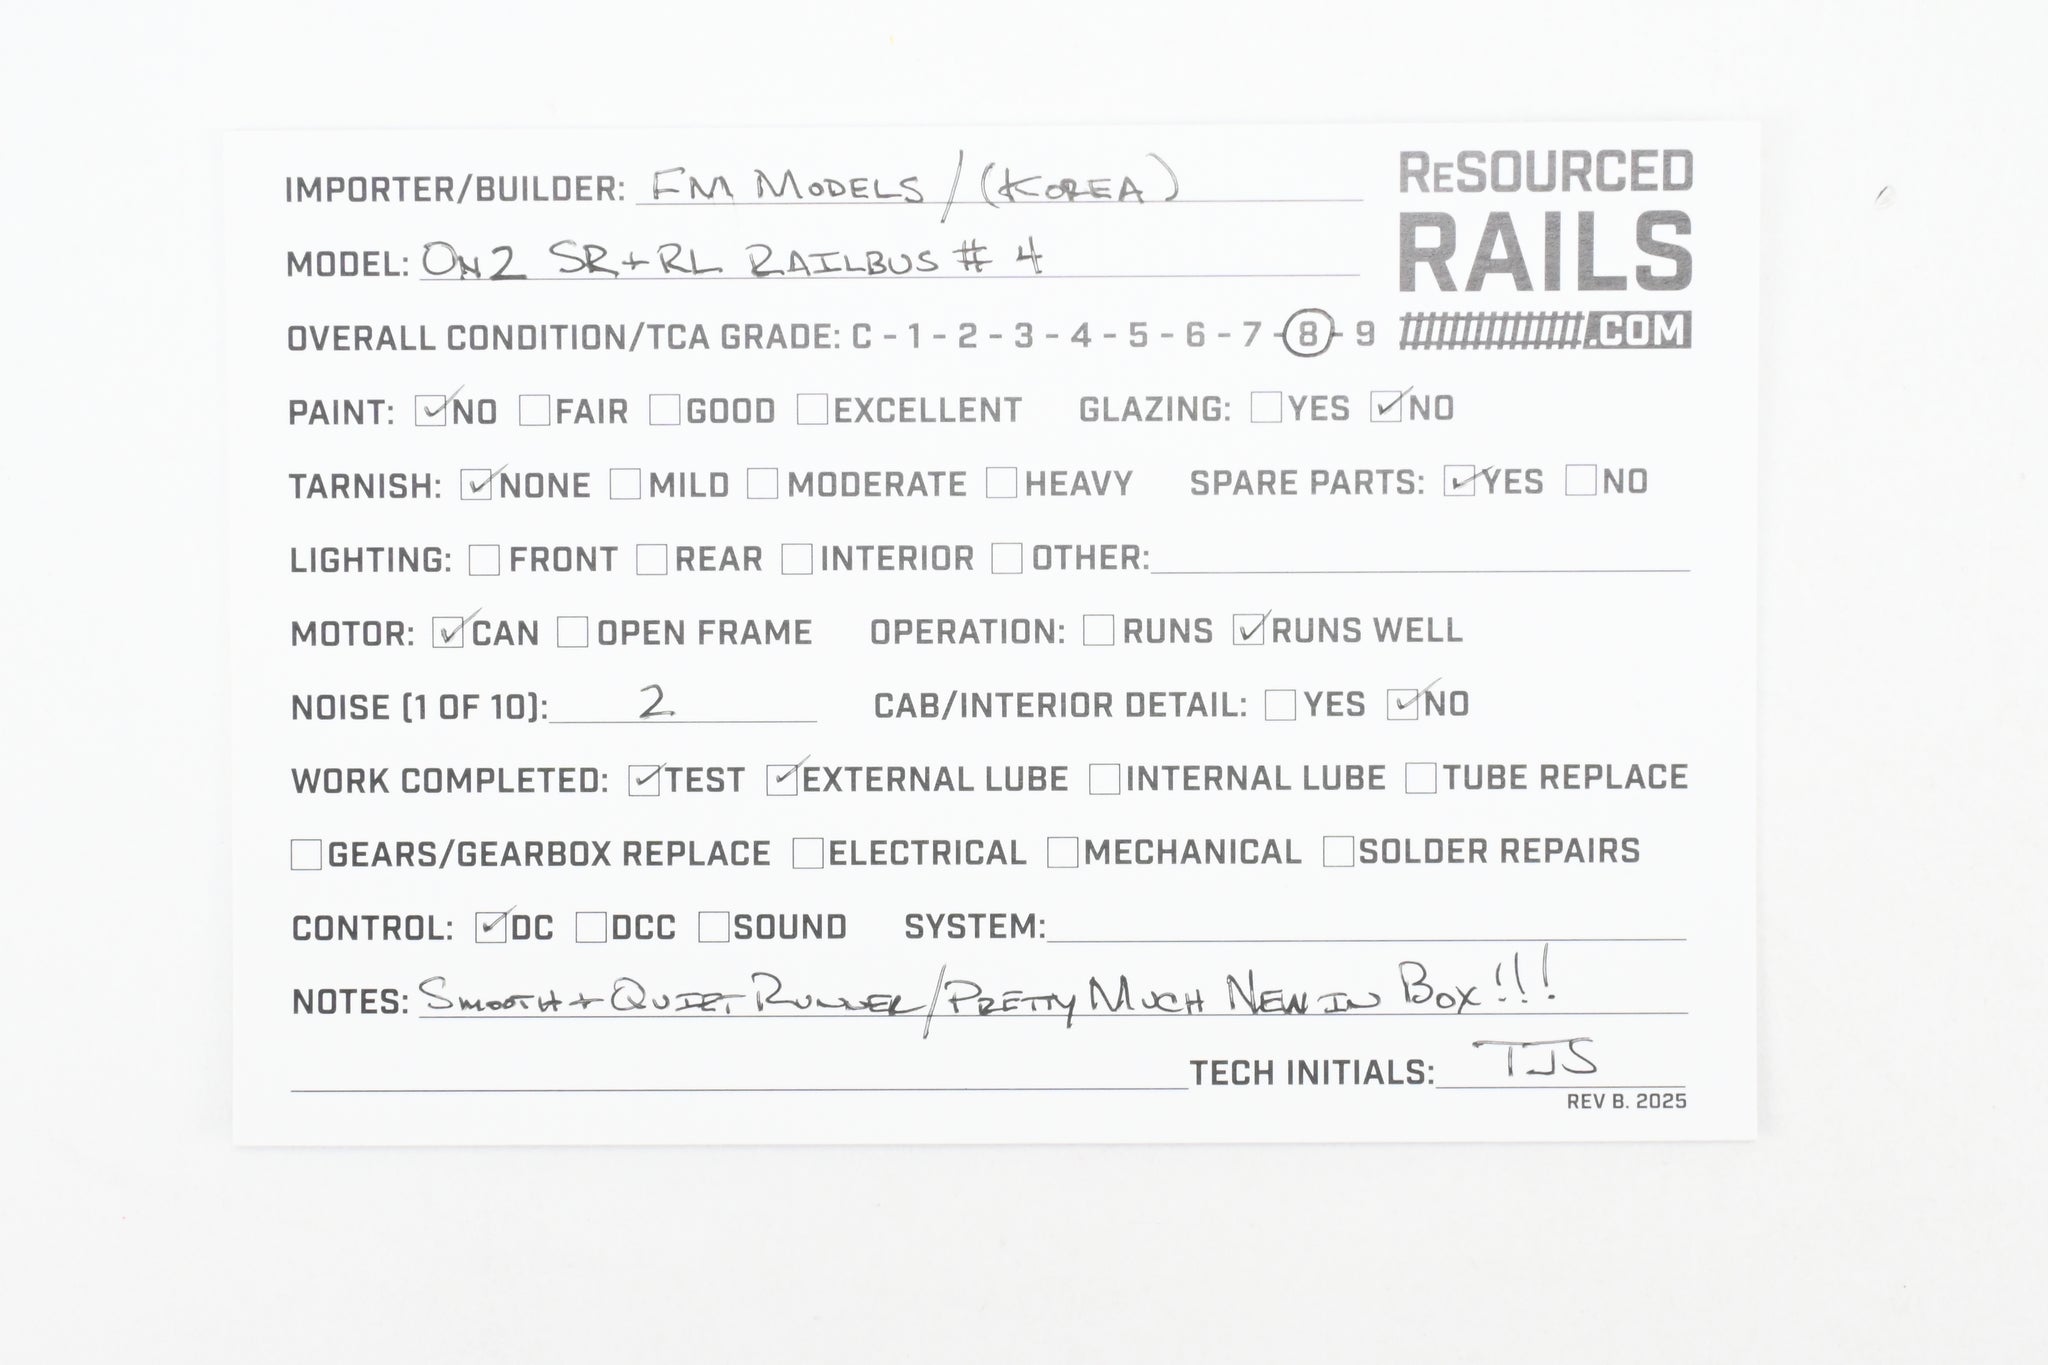 IMPORTER/BUILDER: FM MODELS / (KOREA)
ReSOURCED
RAILS
.COM
MODEL: ON2 SR+RL RAILBUS # 4
OVERALL CONDITION/TCA GRADE: C - 1 - 2 - 3 - 4 - 5 - 6 - 7 - 8 - 9
PAINT: ☑NO ☐FAIR ☐GOOD ☐EXCELLENT GLAZING: ☐YES ☑NO
TARNISH: ☑NONE ☐MILD ☐MODERATE ☐HEAVY SPARE PARTS: ☑YES ☐NO
LIGHTING: ☐FRONT ☐REAR ☐INTERIOR ☐OTHER:
MOTOR: ☑CAN ☐OPEN FRAME OPERATION: ☐RUNS ☑RUNS WELL
NOISE (1 OF 10): 2 CAB/INTERIOR DETAIL: ☐YES ☑NO
WORK COMPLETED: ☑TEST ☑EXTERNAL LUBE ☐INTERNAL LUBE ☐TUBE REPLACE
☐GEARS/GEARBOX REPLACE ☐ELECTRICAL ☐MECHANICAL ☐SOLDER REPAIRS
CONTROL: ☑DC ☐DCC ☐SOUND SYSTEM:
NOTES: SMOOTH + QUIET RUNNER / PRETTY MUCH NEW IN BOX!!!
TECH INITIALS: TJS
REV B. 2025